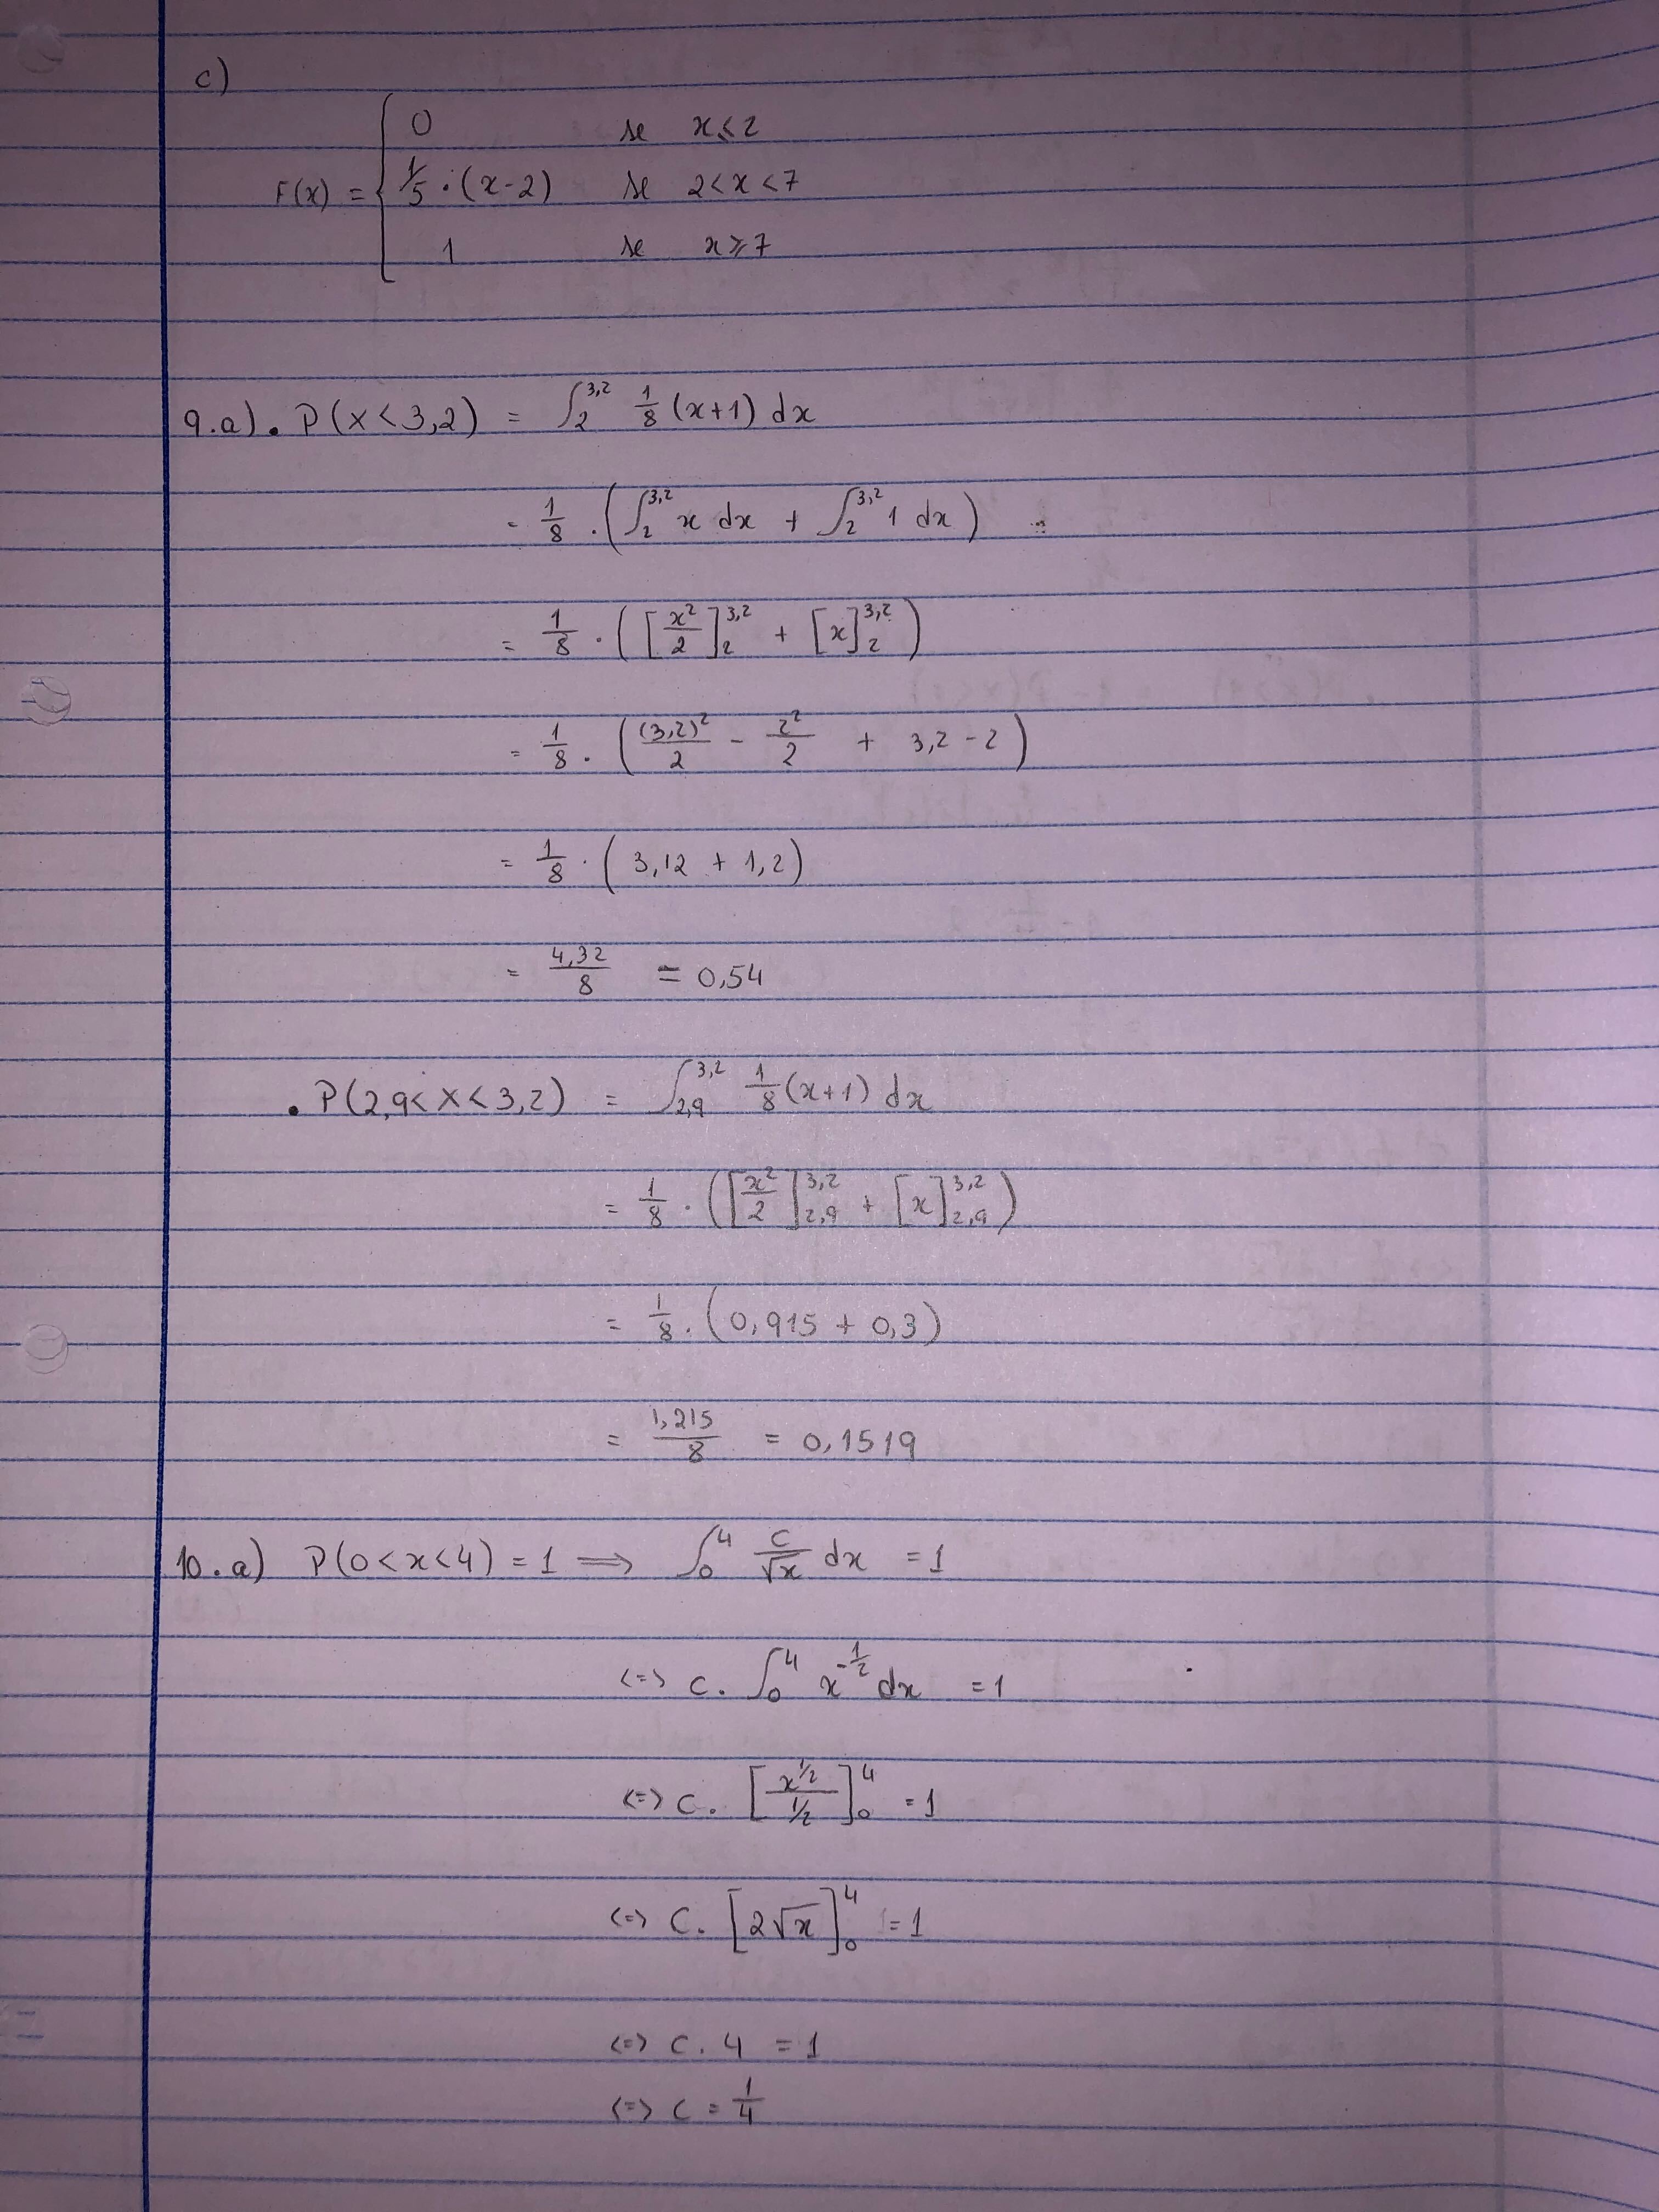 c)
F(x) = { 0 se x ⩽ 2
1/5 · (x-2) se 2 < x < 7
1 se x ⩾ 7
9.a) • P(X < 3,2) = ∫_2^{3,2} 1/8 (x+1) dx
= 1/8 · (∫_2^{3,2} x dx + ∫_2^{3,2} 1 dx)
= 1/8 · ([x²/2]_2^{3,2} + [x]_2^{3,2})
= 1/8 · ((3,2)²/2 - 2²/2 + 3,2 - 2)
= 1/8 · (3,12 + 1,2)
= 4,32/8 = 0,54
• P(2,9 < X < 3,2) = ∫_{2,9}^{3,2} 1/8 (x+1) dx
= 1/8 · ([x²/2]_{2,9}^{3,2} + [x]_{2,9}^{3,2})
= 1/8 · (0,915 + 0,3)
= 1,215/8 = 0,1519
10.a) P(0 < x < 4) = 1 ⟹ ∫_0^4 C/√x dx = 1
<=> C . ∫_0^4 x^{-1/2} dx = 1
<=> C . [x^{1/2}/1/2]_0^4 = 1
<=> C . [2√x]_0^4 = 1
<=> C . 4 = 1
<=> C = 1/4